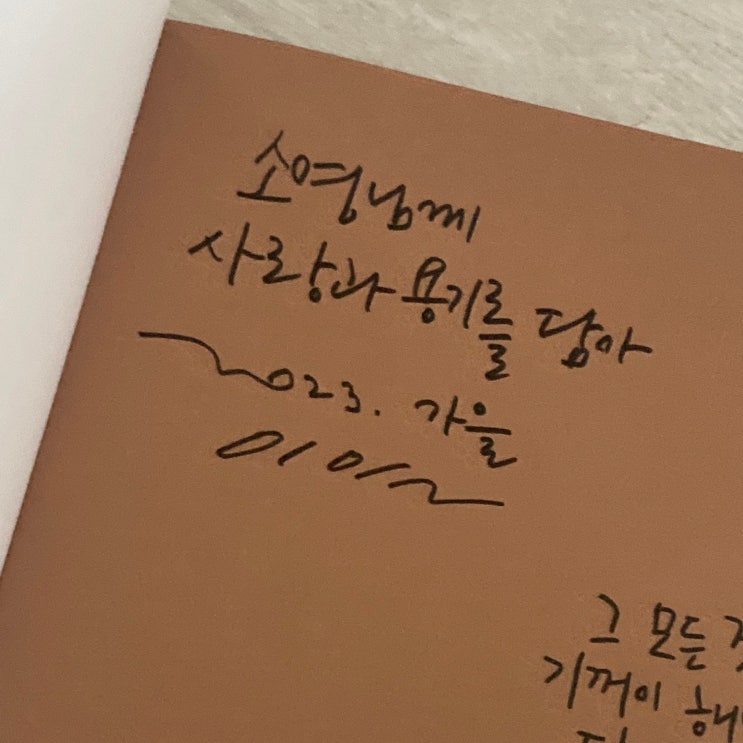 소영님께
사랑과 용기를 담아
2023. 가을
그 모든
기꺼이